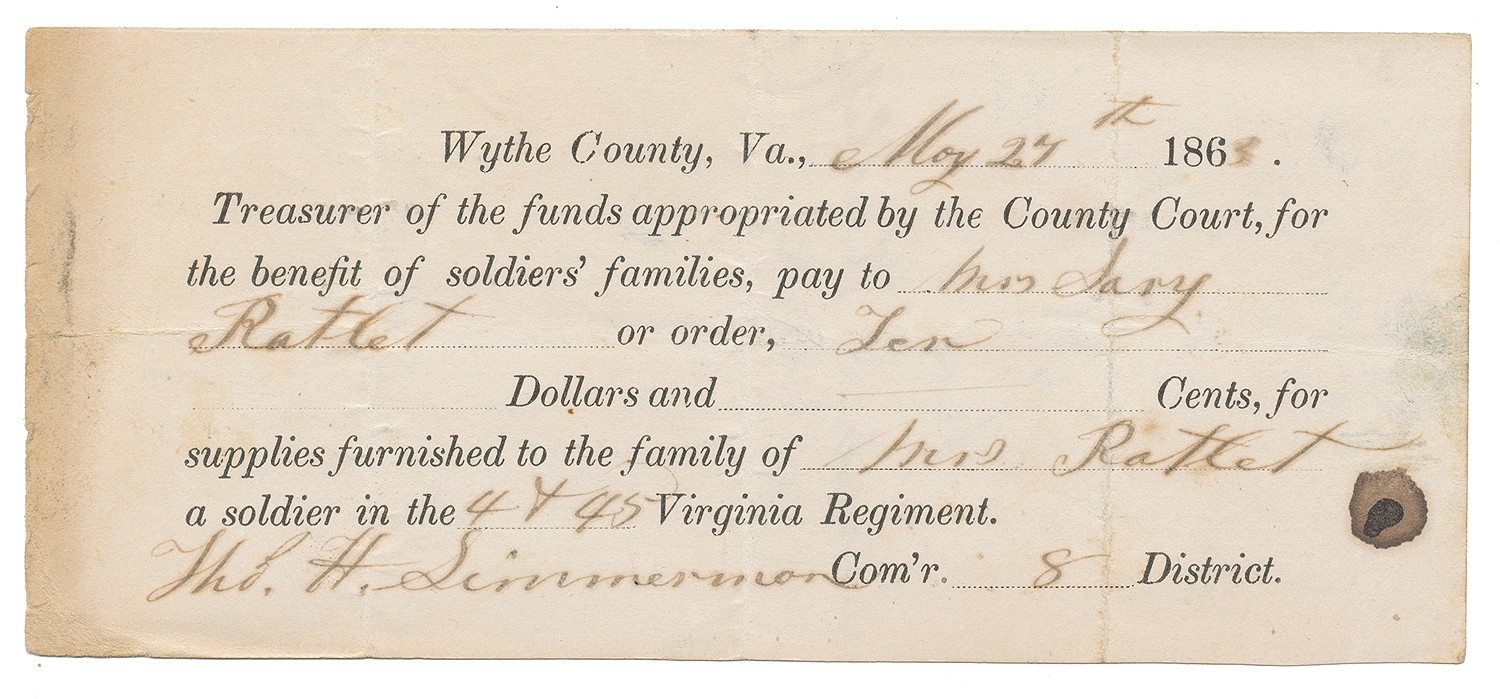 Wythe County, Va., May 27th 1863.
Treasurer of the funds appropriated by the County Court, for
the benefit of soldiers' families, pay to Mrs
Ratlet or order, Ten
Dollars and — Cents, for
supplies furnished to the family of Mrs Ratlet
a soldier in the 4 & 45 Virginia Regiment.
Tho. H. Simmermon Com'r. 8 District.